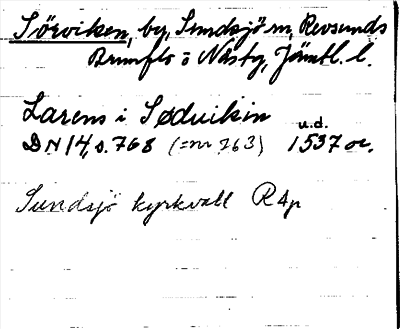 Sörviken, by, Sundsjö sn, Revsunds
Brunflo o Näs tg, Jämtl. l.
Larens i Sødvikin
u.d.
DN 14, s. 768 (=nr 763) 1537 or.
Sundsjö kyrkvall R4p